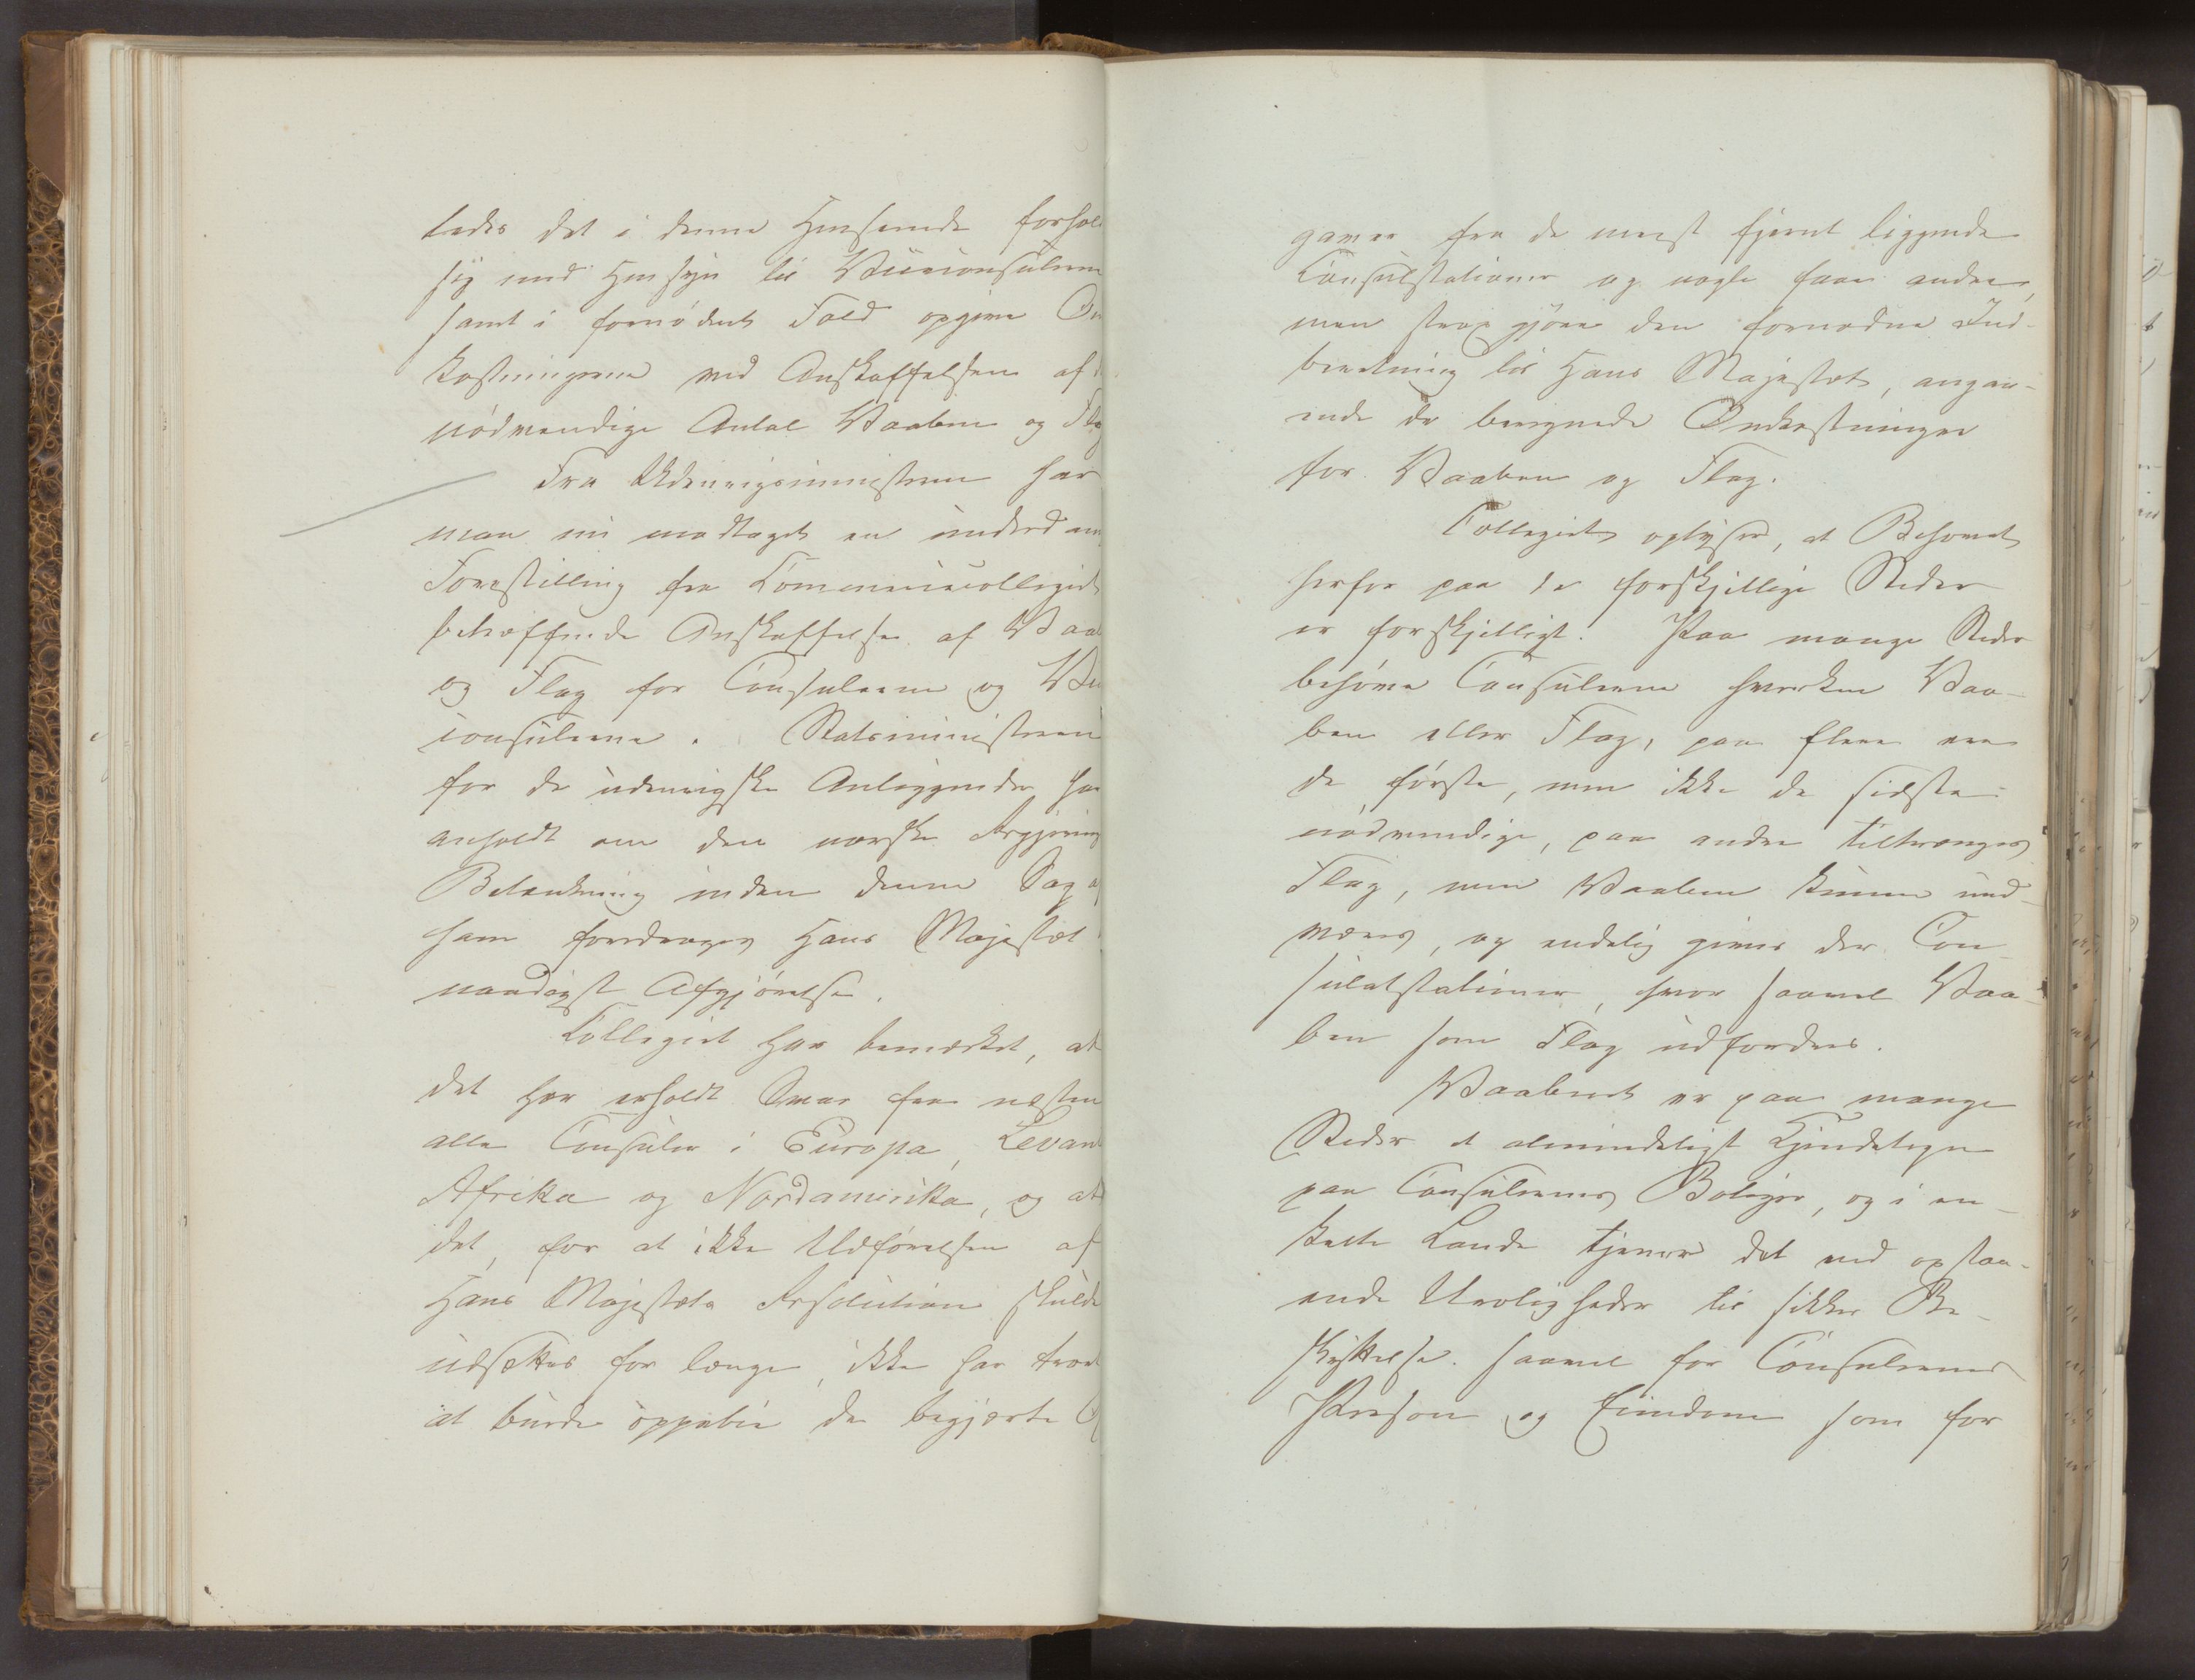 ledes det i denne Henseende forhol
sig med Hensyn til Viceconsulerne
samt i fornødent Fald opgive Om
kostningerne ved Anskaffelsen af
nödvendige Antal Vaaben og Fla
Fra Udenrigsministeren har
man nu modtaget en underdan
Forestilling fra Commercecollegiet
betræffende Anskaffelse af Vaab
og Flag for Consulerne og Vice
consulerne. Statsministeren
for de udenrigske Anliggender har
anholdt om den norske Regjering
Betænkning inden denne Sag
som foredrages Hans Majestæt
naadigst Afgjörelse.
Collegiet har bemærket, at
det har erholdt Svar fra næsten
alle Consuler i Europa, Levant
Afrika og Nordamerika, og at
det, for at ikke Udförelsen af
Hans Majestæts Resolution skulde
udsættes for længe, ikke har troet
at burde oppebie de begjærte O
gaver fra de meest fjernt liggende
Consulstationer og nogle faae andre,
men strax gjöre den fornødne Ind-
beretning til Hans Majestæt, angaa-
ende de beregnede Omkostninger
for Vaaben og Flag.
Collegiet oplyser, at Behovet
herfor paa de forskjellige Steder
er forskjelligt. Paa mange Steder
behöve Consulerne hverken Vaa-
ben eller Flag, paa flere ere
de förste, men ikke de sidste
nödvendige, paa andre tiltrænges
Flag, men Vaaben kunne und-
væres, og endelig gives der Con-
sulatstationer, hvor saavel Vaa-
ben som Flag udfordres.
Vaabenet er paa mange
Steder et almindeligt Kjendetegn
paa Consulernes Boliger, og i en-
kelte Lande tjener det ved opstaa-
ende Uroligheder til sikker Be-
skyttelse saavel for Consulernes
Person og Eiendom som for